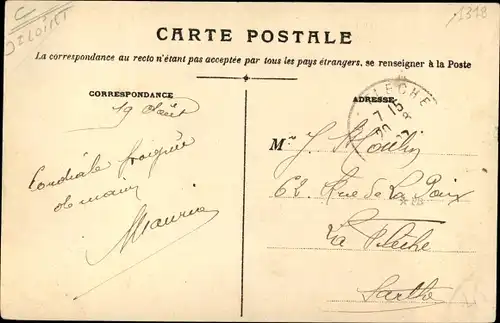 C
1318
CARTE POSTALE
La correspondance au recto n'étant pas acceptée par tous les pays étrangers, se renseigner à la Poste
CORRESPONDANCE
19 Août
Cordiale poignée
de main
Maurice
ADRESSE
FLECHE
7 15
20
Mr J. Moulin
62 Rue de La Paix
La Flèche
Sarthe